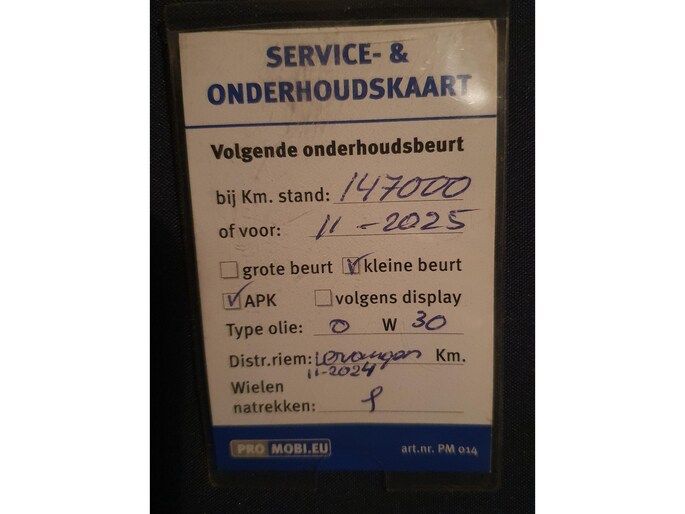 SERVICE- &
ONDERHOUDSKAART
Volgende onderhoudsbeurt
bij Km. stand: 147000
of voor: 11-2025
grote beurt kleine beurt
APK volgens display
Type olie: 0 W 30
Distr.riem: Km.
11-2024
Wielen
natrekken:
PRO MOBI.EU art.nr. PM 014